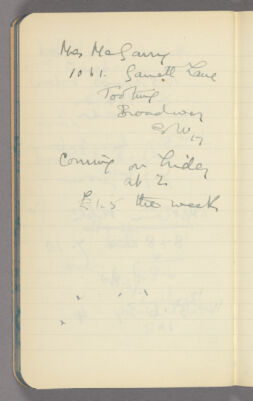 Mrs McGarry
1061. Garratt Lane
Tooting
Broadway
S.W.17
Coming on Friday
at 2.
£1-5 the week